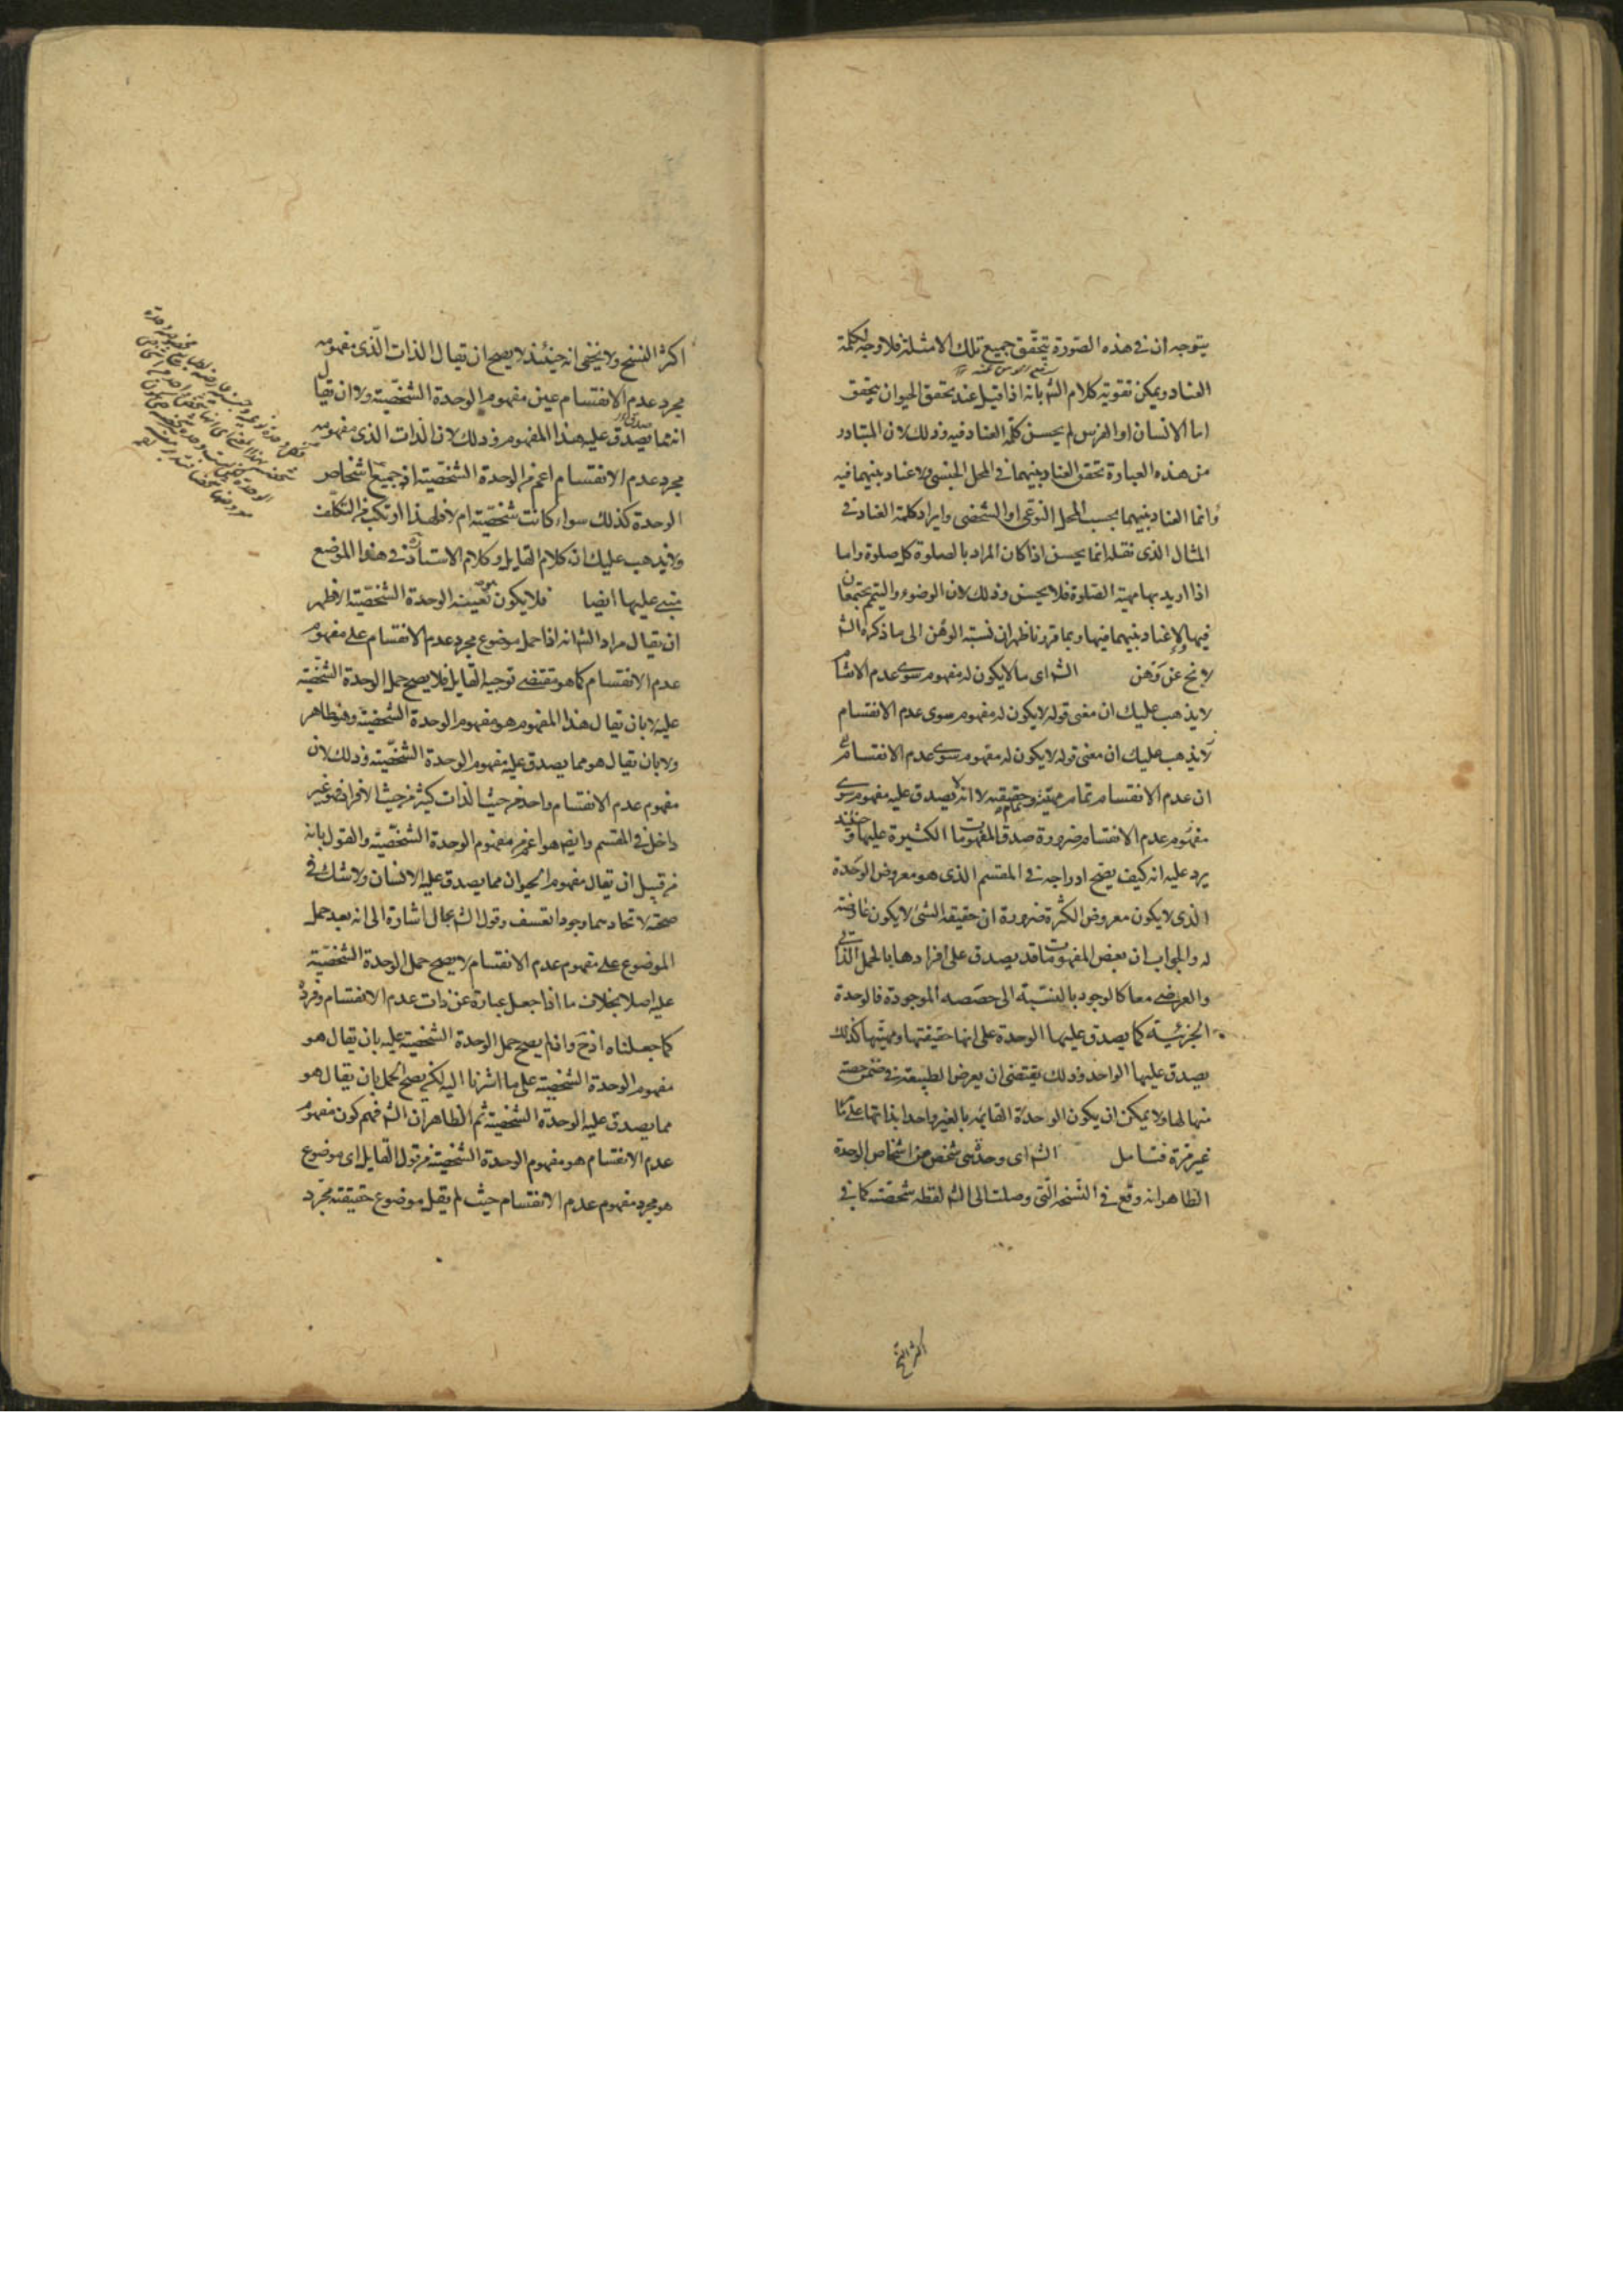 يتوجه ان فى هذه الصورة يتحقق جميع تلك الامثلة فلا وجه لكلمة
العناد ويمكن تقوية كلام الش بانه اذا قيل عند تحقق الحيوان يتحقق
اما الانسان او الفرس لم يحسن كلمة العناد فيه وذلك لان المتبادر
من هذه العبارة تحقق العناد بينهما فى المحل الجنسى ولا عناد بينهما فيه
وانما العناد بينهما بحسب المحل النوعى او الشخصى وايراد كلمة العناد فى
المثال الذى نقله انما يحسن اذا كان المراد بالصلوة كل صلوة واما
اذا اريد بها مهية الصلوة فلا يحسن وذلك لان الوضوء والتيمم يجتمعان
فيها ولا عناد بينهما فيها وبما قررنا ظهر ان نسبة الوهن الى ما ذكره الش
لا يخ عن وهن الش اى ما لا يكون له مفهوم سوى عدم الانقسام
لا يذهب عليك ان معنى قوله لا يكون له مفهوم سوى عدم الانقسام
لا يذهب عليك ان معنى قوله لا يكون له مفهوم سوى عدم الانقسام
ان عدم الانقسام تمام مهيته وحقيقته لا انه لا يصدق عليه مفهوم سوى
مفهوم عدم الانقسام ضرورة صدق المفهومات الكثيرة عليها وحينئذ
يرد عليه انه كيف يصح ادراجه فى المقسم الذى هو معروض الوحدة
الذى لا يكون معروض الكثرة ضرورة ان حقيقة الشئ لا يكون عارضة
له والجواب ان بعض المفهومات قد يصدق على افرادها بالحمل الذاتى
والعرضى معا كالوجود بالنسبة الى حصصه الموجودة فالوحدة
الجزئية كما يصدق عليها الوحدة على انها حقيقتها ومهيتها كذلك
يصدق عليها الواحد وذلك يقتضى ان يعرض الطبيعة فى ضمن حصة
منها لها ولا يمكن ان يكون الوحدة القائمة بالغير واحدا بذاتها على ما
غير مرة فتامل الش اى وحدة هى شخص من اشخاص الوحدة
الظاهر انه وقع فى النسخة التى وصلت الى الش لفظة شخصية كما فى
اكثر النسخ
اكثر النسخ ولا يخفى انه حينئذ لا يصح ان يقال الذات الذى مفهومه
مجرد عدم الانقسام عين مفهوم الوحدة الشخصية ولا ان يقال
انه مما يصدق عليه هذا المفهوم وذلك لان الذات الذى مفهومه
مجرد عدم الانقسام اعم من الوحدة الشخصية اذ جميع اشخاص
الوحدة كذلك سواء كانت شخصية ام لا فلهذا ارتكب من التكلف
ولا يذهب عليك ان كلام القايل وكلام الاستاذ فى هذا الموضع
مبنى عليها ايضا فلا يكون بعينه الوحدة الشخصية الاظهر
ان يقال مراد الش انه اذا حمل موضوع مجرد عدم الانقسام على مفهوم
عدم الانقسام كما هو مقتضى توجيه القايل فلا يصح حمل الوحدة الشخصية
عليه لا بان يقال هذا المفهوم هو مفهوم الوحدة الشخصية وهو ظاهر
ولا بان يقال هو مما يصدق عليه مفهوم الوحدة الشخصية وذلك لان
مفهوم عدم الانقسام واحد من حيث الذات كثير من حيث الافراد فهو غير
داخل فى المقسم وايض هو اعم من مفهوم الوحدة الشخصية والقول بانه
من قبيل ان يقال مفهوم الحيوان مما يصدق عليه الانسان ولا شك فى
صحته لاتحادهما وجودا تعسف وقول الش بحال اشارة الى انه بعد حمل
الموضوع على مفهوم عدم الانقسام لا يصح حمل الوحدة الشخصية
عليه اصلا بخلاف ما اذا جعل عبارة عن ذات عدم الانقسام وفرده
كما جعلناه اذ ح وان لم يصح حمل الوحدة الشخصية عليه بان يقال هو
مفهوم الوحدة الشخصية على ما اشرنا اليه لكن يصح الحمل بان يقال هو
مما يصدق عليه الوحدة الشخصية ثم الظاهر ان الش فهم كون مفهوم
عدم الانقسام هو مفهوم الوحدة الشخصية من قول القايل اى موضوع
هو مجرد مفهوم عدم الانقسام حيث لم يقل موضوع حقيقته مجرد